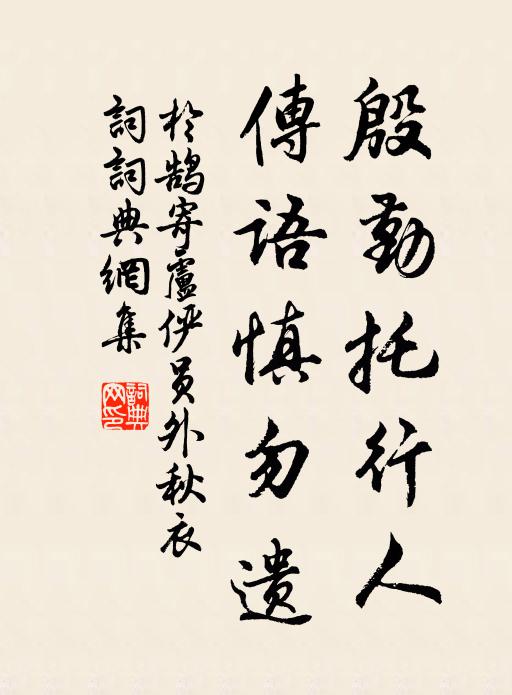 殷勤托行人
傳語慎勿遺
於鵠寄盧儼員外秋衣
詞詞典網集
詞典網印